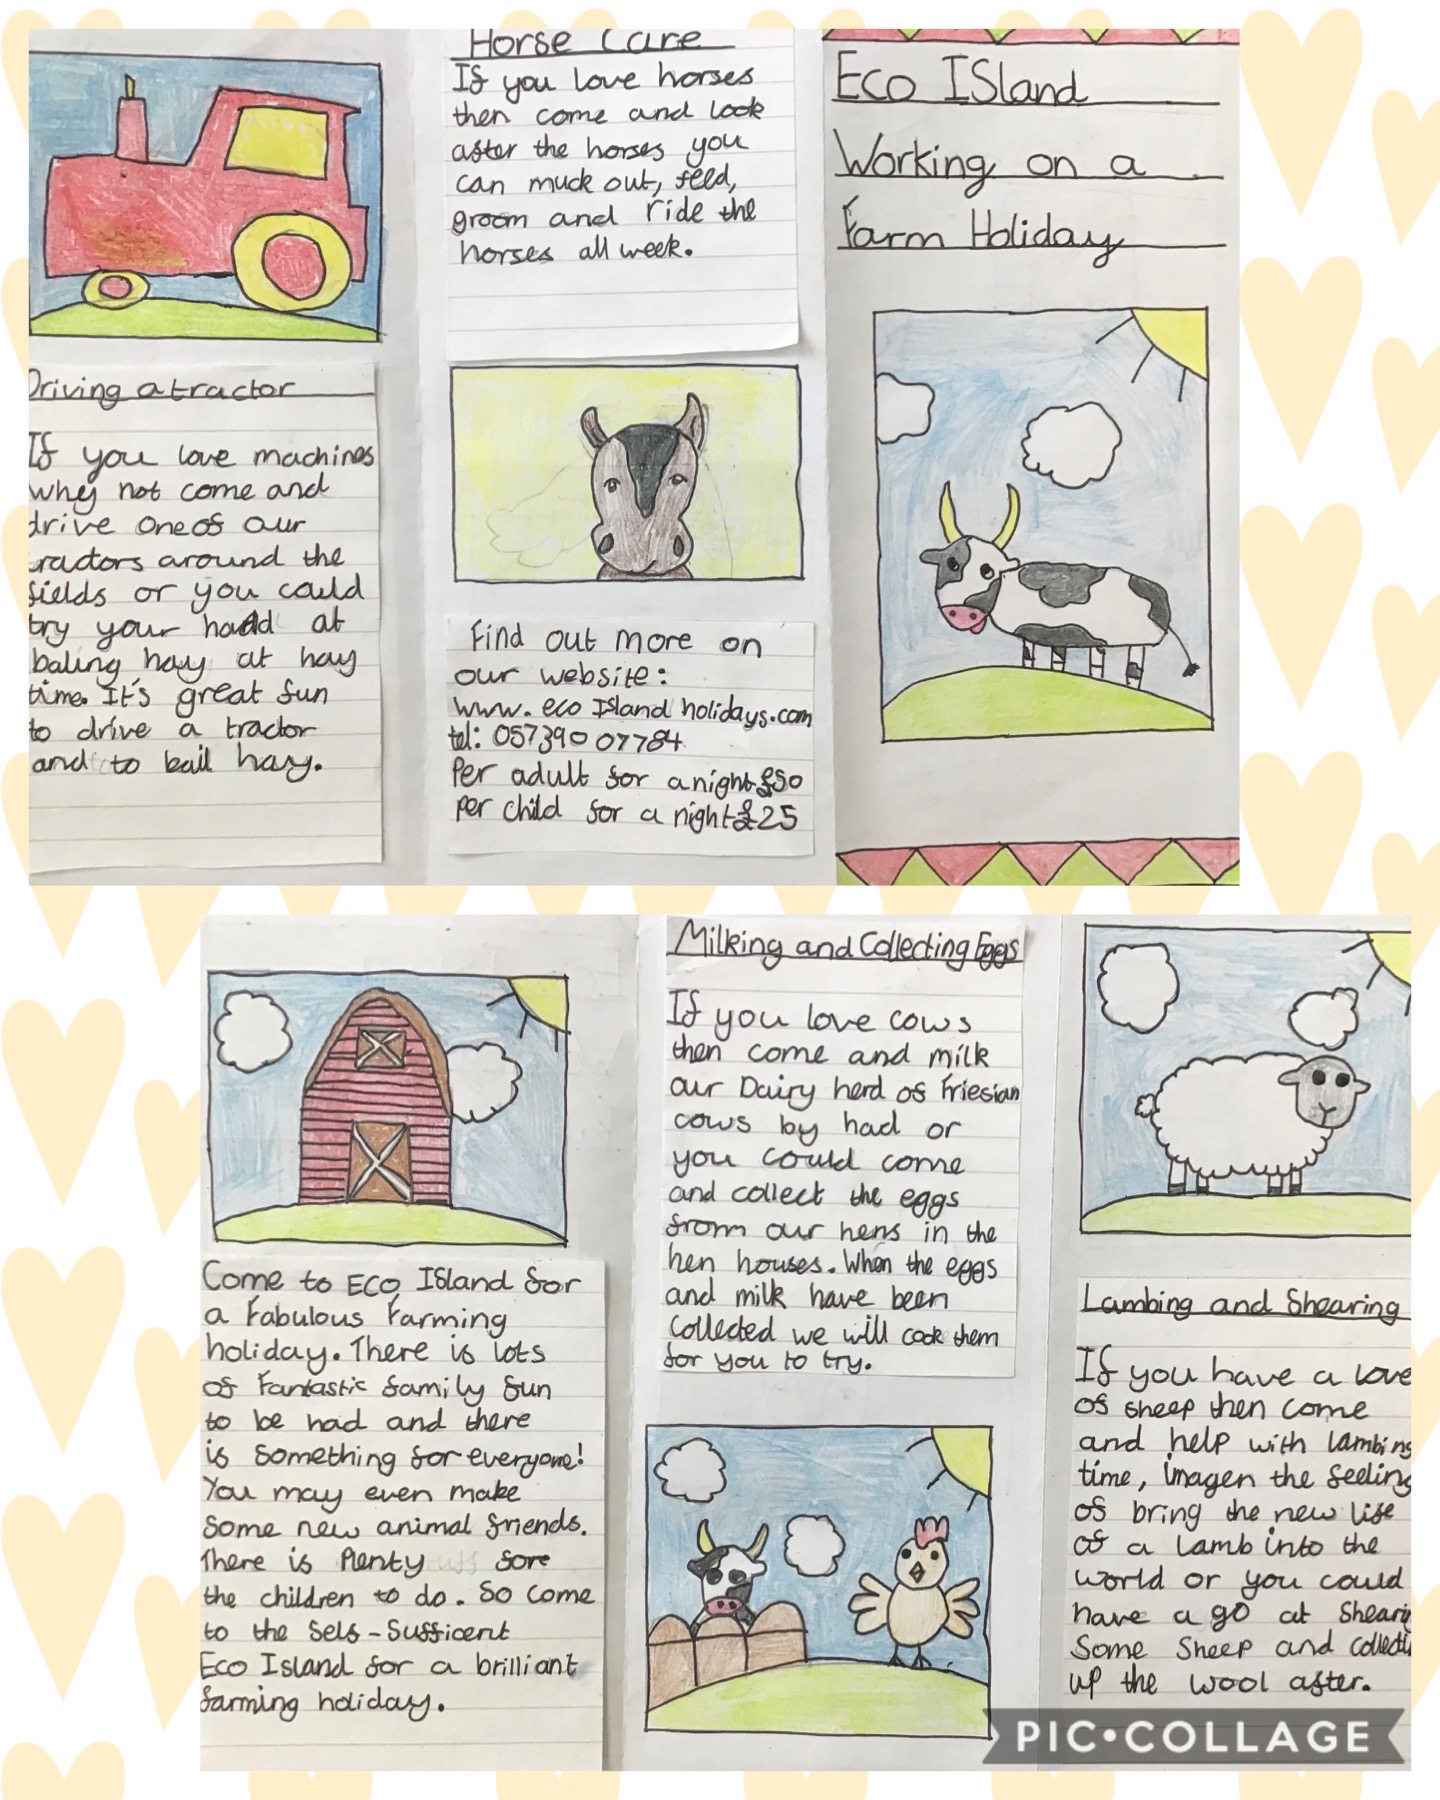 Driving a tractor
If you love machines
why not come and
drive one of our
tractors around the
fields or you could
try your hand at
baling hay at hay
time. It's great fun
to drive a tractor
and to bail hay.
Horse Care
If you love horses
then come and look
after the horses you
can muck out, feed,
groom and ride the
horses all week.
Find out more on
our website:
www.eco Island holidays.com
tel: 057390 07784
Per adult for a night £50
per child for a night £25
Eco ISland
Working on a
Farm Holiday
Come to ECO Island for
a Fabulous Farming
holiday. There is lots
of Fantastic family fun
to be had and there
is something for everyone!
You may even make
some new animal friends.
There is Plenty fore
the children to do. So come
to the Self-Sufficent
Eco Island for a brilliant
farming holiday.
Milking and Collecting Eggs
If you love cows
then come and milk
our Dairy herd of Friesian
cows by had or
you could come
and collect the eggs
from our hens in the
hen houses. When the eggs
and milk have been
collected we will cook them
for you to try.
Lambing and Shearing
If you have a love
of sheep then come
and help with lambing
time, imagen the feeling
of bring the new life
of a lamb into the
world or you could
have a go at Shearin
Some Sheep and collecti
up the wool after.
PIC•COLLAGE